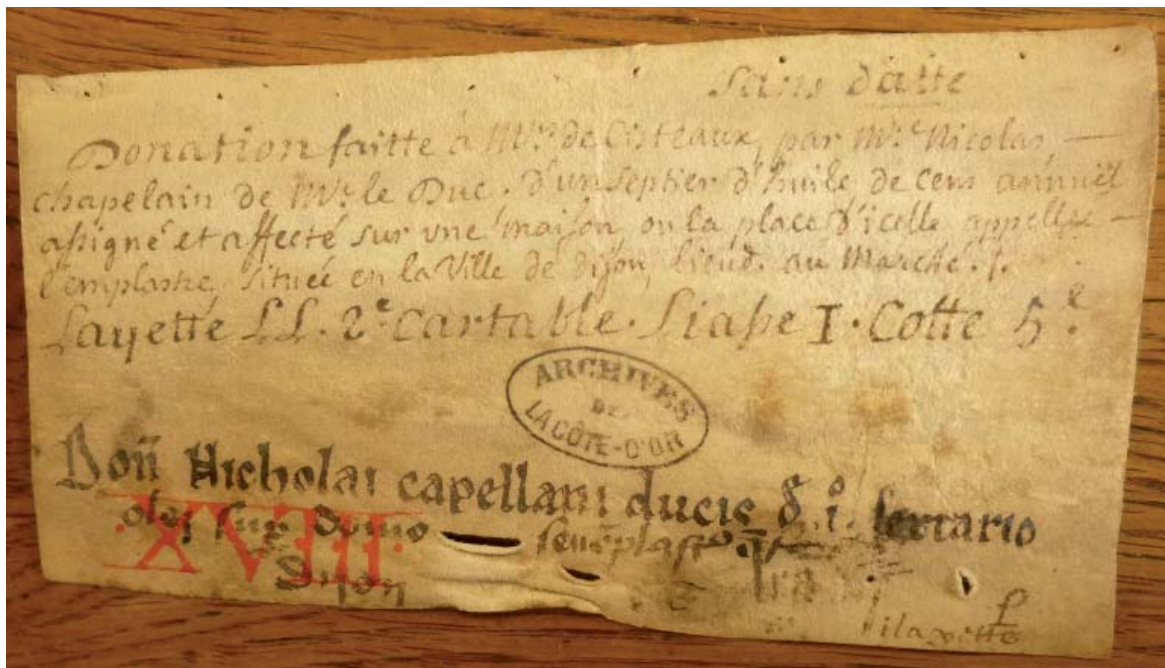 sans datte
Donation faitte à Mrs de Cisteaux, par Mr. Nicolas —
chapelain de Mr. le Duc. d'un septier d'huile de cens annüel
assigné et affecté sur vne maison ou la place d'icelle appellee —
l'emplastre, située en la Ville de dijon, lieud. au Marché. /.
Layette LL. 2e. Cartable. Liasse I. Cotte 5e.
ARCHIVES
DE
LA CÔTE-D'OR
Don̄ Nicholai capellani ducis d. i. sextario
olei sup domo
XVIII
Dijon